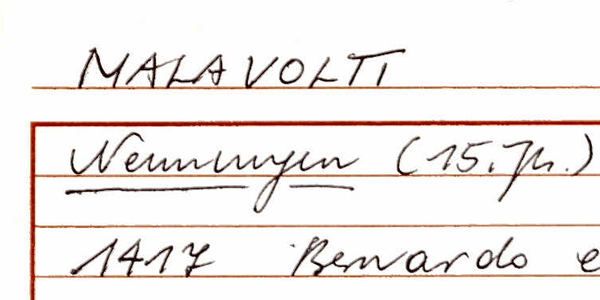 MALAVOLTI
Nennungen (15. Jh.)
1417 Bernardo e